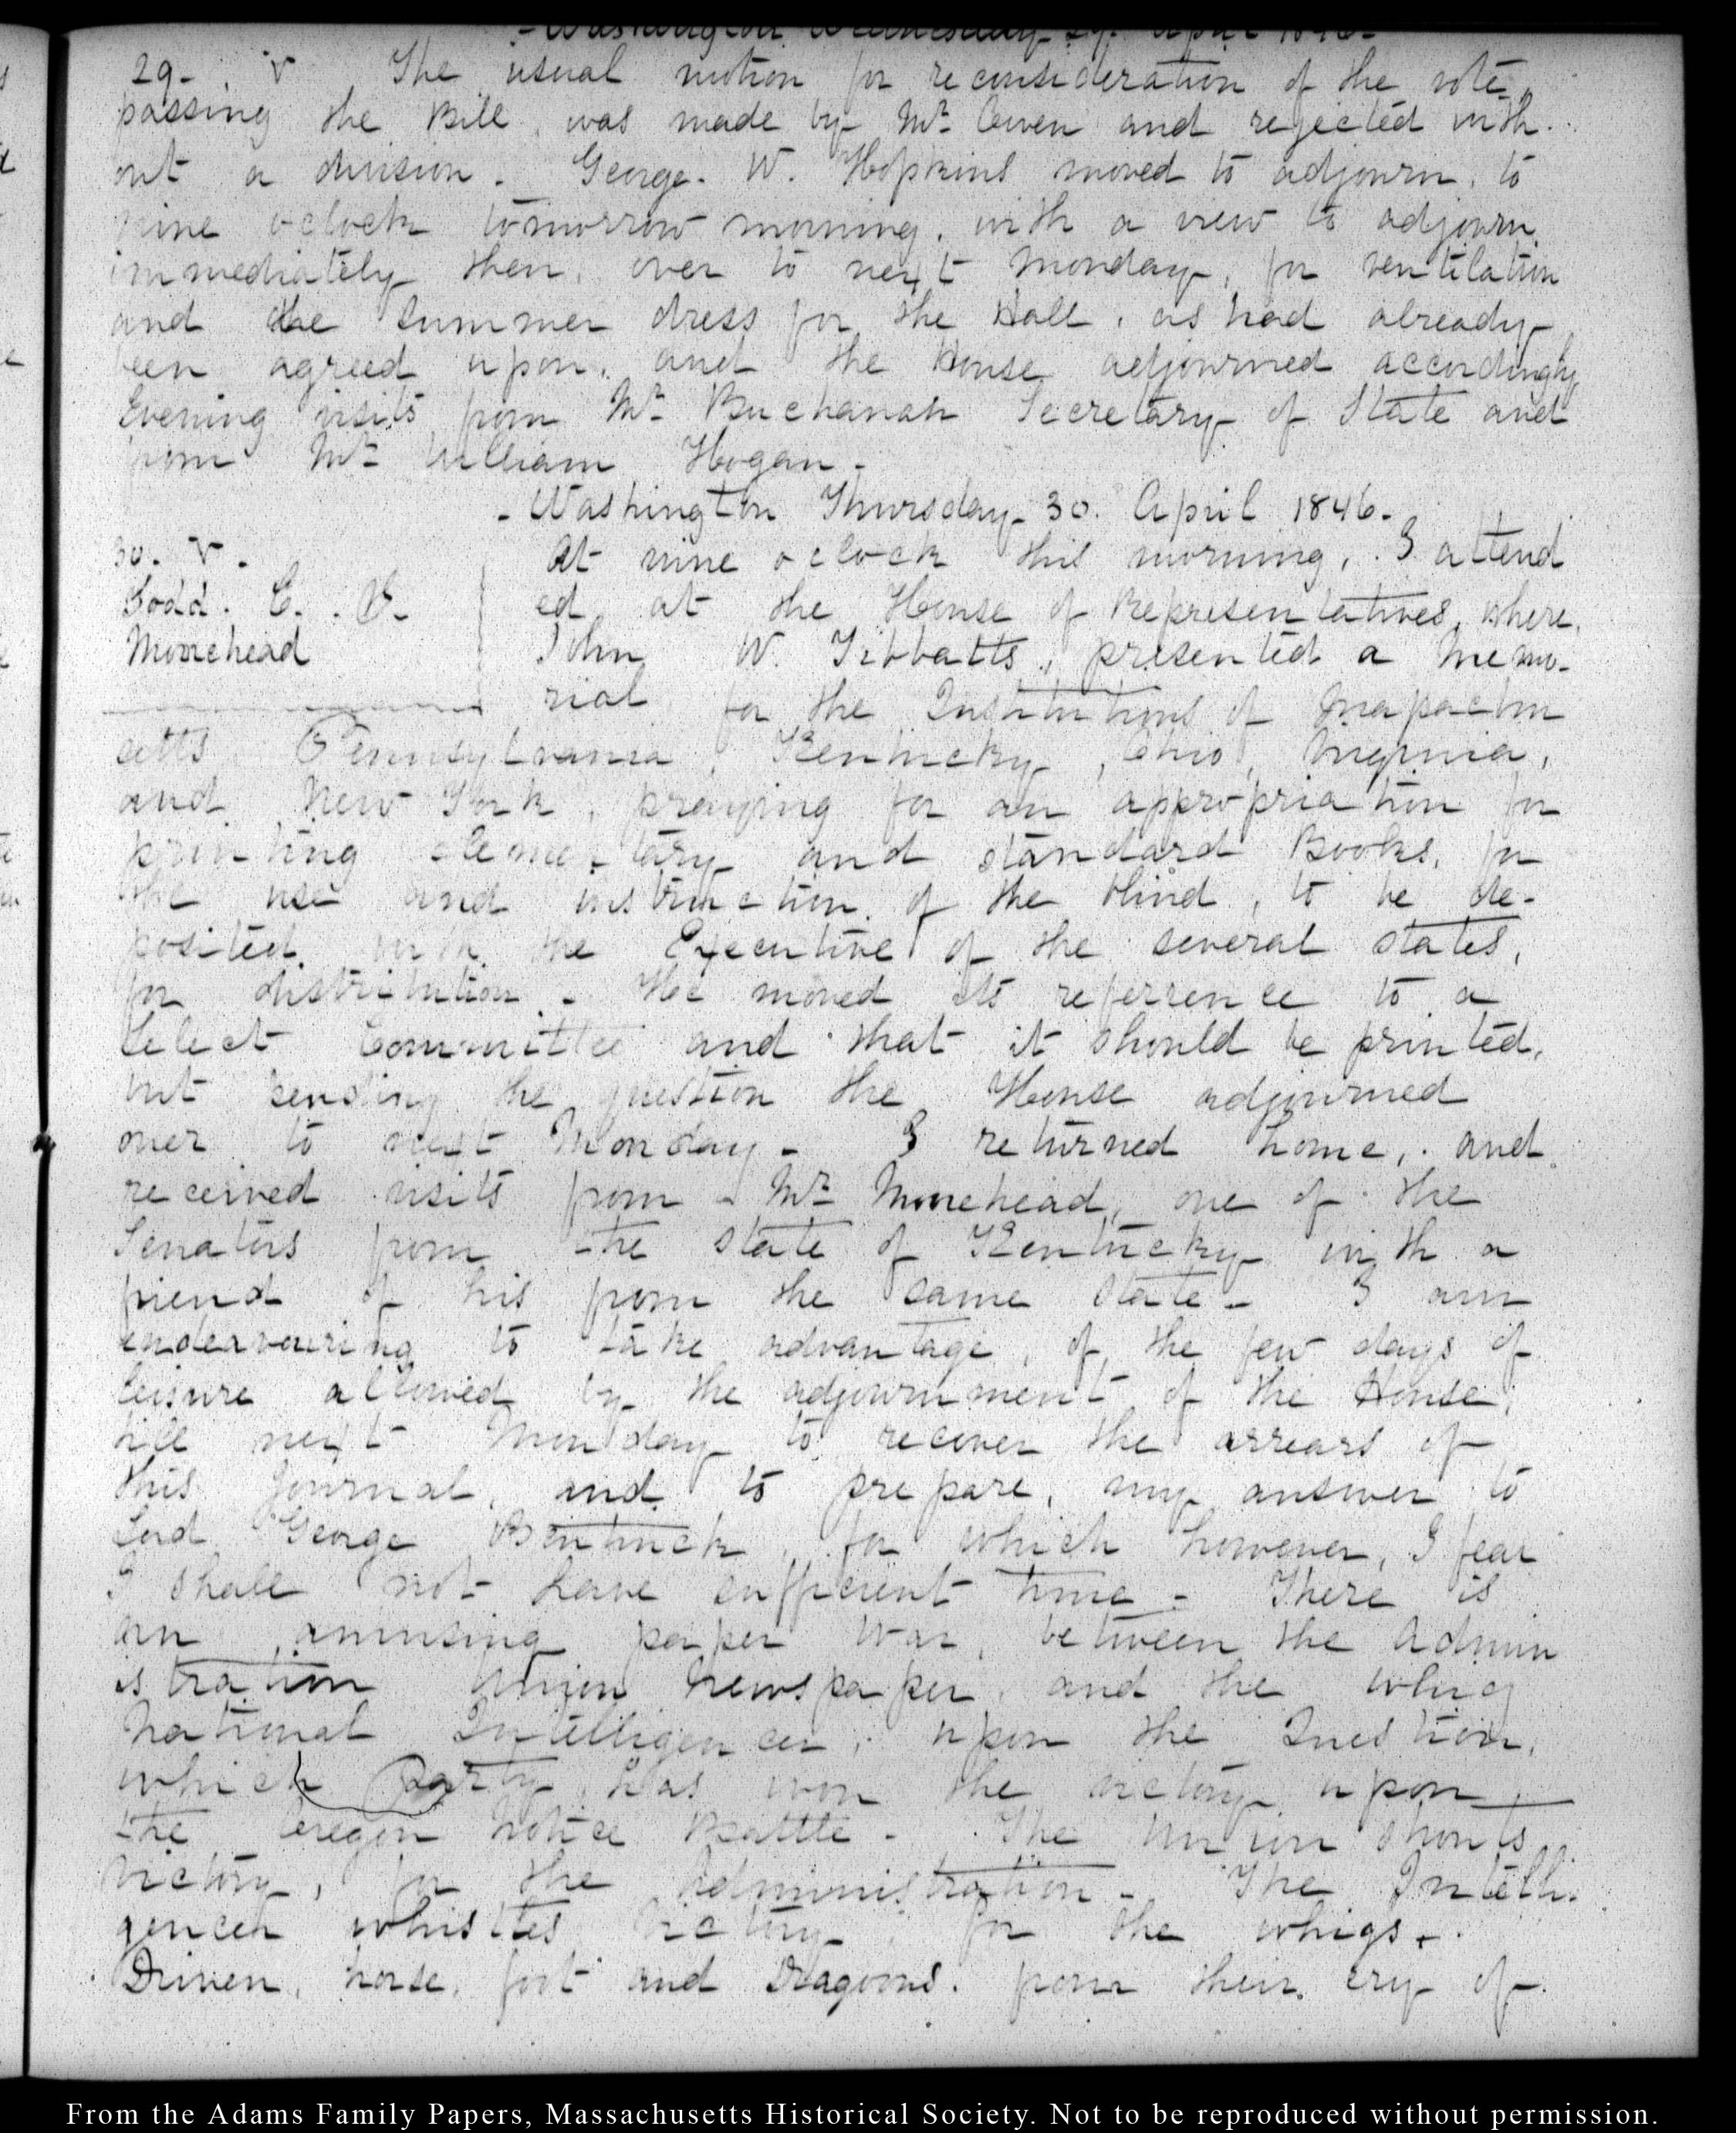 - Washington Wednesday 29. April 1846 -
29. V. The usual motion for reconsideration of the vote,
passing the Bill, was made by Mr. Owen and rejected with-
out a division - George W. Hopkins moved to adjourn, to
nine o clock tomorrow morning, with a view to adjourn
immediately then, over to next Monday, for ventilation
and the summer dress for the Hall, as had already
been agreed upon, and the House adjourned accordingly
Evening visits from Mr. Buchanan Secretary of State and
from Mr. William Hogan -
- Washington Thursday 30. April 1846 -
30. V.
Todd. C. . V.
Morehead
At nine o clock this morning, I attend
ed, at the House of Representatives, where,
John W. Tibbatts, presented a Memo-
rial for the Institutions of Massachu
setts, Pennsylvania, Kentucky, Ohio, Virginia,
and New York, praying for an appropriation for
printing elementary and standard Books, for
the use and instruction of the blind, to be de-
posited with the Executive of the several states,
for distribution - He moved its reference to a
Select Committee and that it should be printed,
but pending the question the House adjourned
over to next Monday - I returned home, and
received visits from Mr. Morehead, one of the
Senators from the State of Kentucky with a
friend of his from the same State - I am
endeavouring to take advantage, of the few days of
leisure allowed by the adjournment of the House,
till next Monday to recover the arrears of
this Journal, and to prepare, my answer to
Lord George Bentinck, for which however, I fear
I shall not have sufficient time - There is
an amusing paper war, between the Admin
istration Union Newspaper, and the whig
National Intelligencer, upon the Question,
which Party, has won the victory upon
the Oregon Notice Battle - The Union shouts
Victory, for the Administration - The Intelli-
gencer whistles Victory for the whigs -
Driven, horse, foot and Dragoons, from their cry of
From the Adams Family Papers, Massachusetts Historical Society. Not to be reproduced without permission.